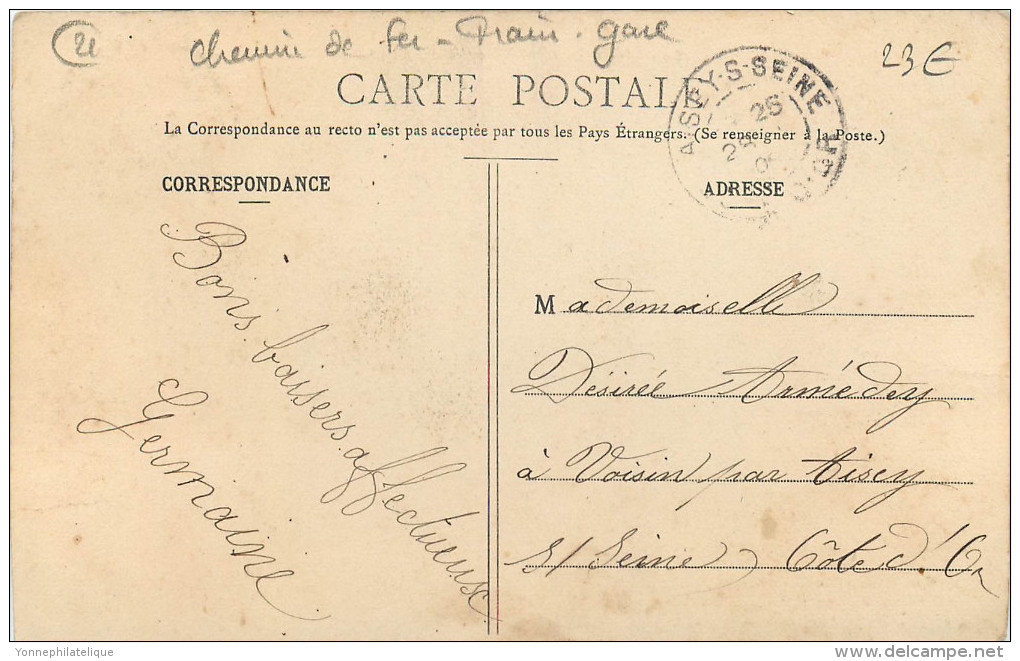 21
chemin de fer - Train - gare
23€
CARTE POSTALE
La Correspondance au recto n'est pas acceptée par tous les Pays Étrangers. (Se renseigner à la Poste.)
AISEY-S-SEINE
28
CORRESPONDANCE
ADRESSE
Bons baisers affectueux
Germaine
Mademoiselle
Désirée Armédey
à Voisin par Aisey
s/ Seine Côte d'Or
Yonnephilatelique
delcampe.net